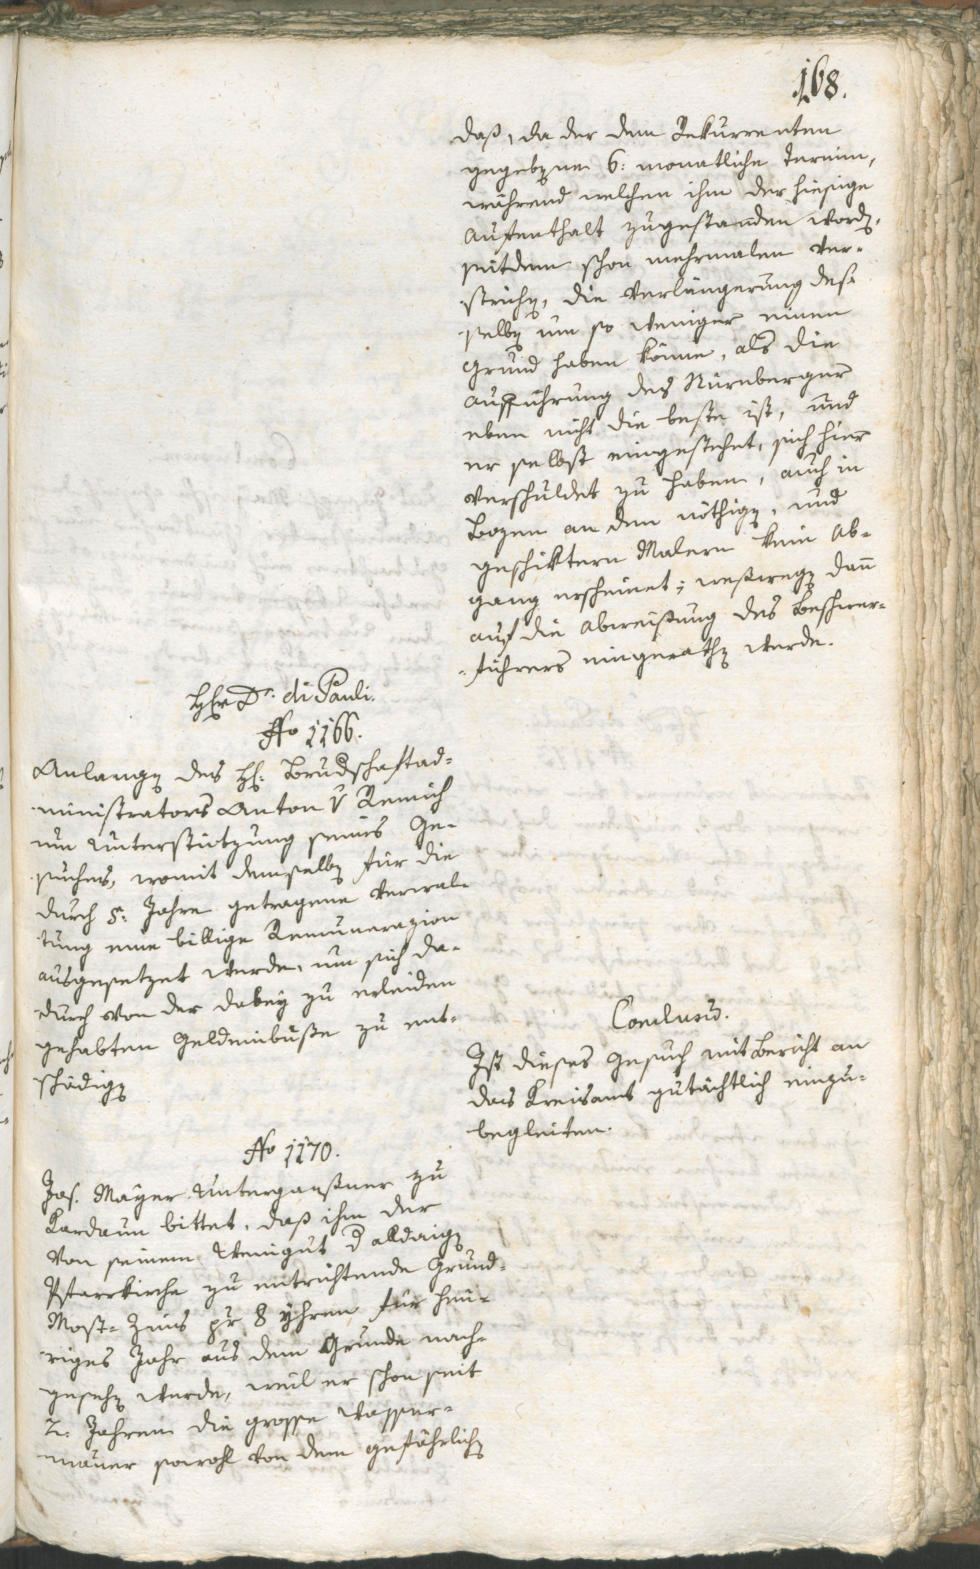 168.
daß, da der dem Rekurrenten
gegebene 6: monatliche Termin,
während welchen ihm der hiesige
Aufenthalt zugestanden word,
seitdem schon mehrmalen ver-
strichen, die Verlängerung des-
selben um so weniger einen
Grund haben könne, als die
Aufführung des Nürnberger
eben nicht die beste ist, und
er selbst eingestehet, sich hier
verschuldet zu haben, auch in
Bozen an den nöthigen, und
geschiktern Malern kein Ab-
gang erscheinet; weßwegen dann
auf die Abweisung des Beschwer-
führers eingerathen werde.
Hr Dr. di Pauli.
No 1166.
Anlangen des H: Brudschaftad-
ministrators Anton v Remich
um Unterstützung seines Ge-
suches, womit demselben für die
durch 5: Jahre getragene Verwal-
tung eine billige Remunerazion
ausgesetzet werde, um sich da-
durch von der dabey zu erleiden
gehabten Geldeinbuße zu ent-
schädigen
Conclusum.
Ist dieses Gesuch mit Bericht an
das Kreisamt gutächtlich einzu-
begleiten.
No 1170.
Jos. Mayer Unterganßner zu
Kardaun bittet, daß ihm der
von seinem Weingut d alldaigen
Pfarrkirche zu entrichtende Grund-
Most-Zins pr 8 Yhren für heu-
riges Jahr aus dem Grunde nach-
gesehen werde, weil er schon seit
2: Jahren die grosse Wasser-
mauer sowohl von dem gefährlichen